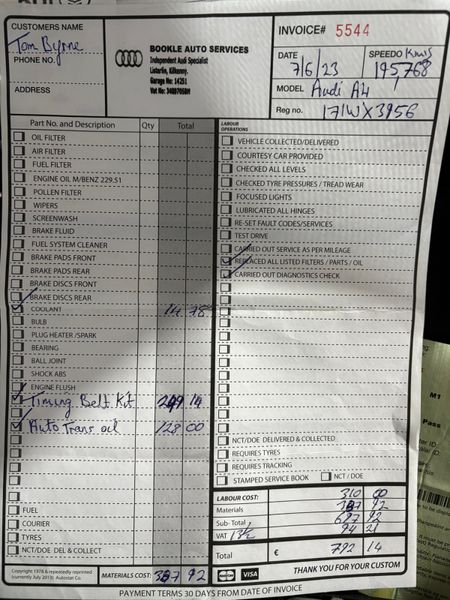 CUSTOMERS NAME
Tom Byrne
PHONE NO.
ADDRESS
BOOKLE AUTO SERVICES
Independent Audi Specialist
Listerlin, Kilkenny.
Garage No: 14251
INVOICE# 5544
DATE
7/6/23
SPEEDO Kms
195,768
MODEL Audi A4
Reg no. 171WX3956
Part No. and Description Qty Total
OIL FILTER
AIR FILTER
FUEL FILTER
ENGINE OIL M/BENZ 229.51
POLLEN FILTER
WIPERS
SCREENWASH
BRAKE FLUID
FUEL SYSTEM CLEANER
BRAKE PADS FRONT
BRAKE PADS REAR
BRAKE DISCS FRONT
BRAKE DISCS REAR
COOLANT 14 78
BULB
PLUG HEATER /SPARK
BEARING
BALL JOINT
SHOCK ABS
ENGINE FLUSH
Timing Belt Kit 249 14
Auto Trans oil 128 00
FUEL
COURIER
TYRES
NCT/DOE DEL & COLLECT
LABOUR
OPERATIONS
VEHICLE COLLECTED/DELIVERED
COURTESY CAR PROVIDED
CHECKED ALL LEVELS
CHECKED TYRE PRESSURES / TREAD WEAR
FOCUSED LIGHTS
LUBRICATED ALL HINGES
RE-SET FAULT CODES/SERVICES
TEST DRIVE
CARRIED OUT SERVICE AS PER MILEAGE
REPLACED ALL LISTED FILTERS / PARTS / OIL
CARRIED OUT DIAGNOSTICS CHECK
NCT/DOE DELIVERED & COLLECTED
REQUIRES TYRES
REQUIRES TRACKING
STAMPED SERVICE BOOK NCT / DOE
LABOUR COST: 310 00
Materials 387 92
Sub- Total 697 92
VAT 13½ 94 21
Total € 792 14
Copyright 1978 & repeatedly reprinted
(currently July 2013) Autostat Co.
MATERIALS COST: 387 92
VISA
THANK YOU FOR YOUR CUSTOM
PAYMENT TERMS 30 DAYS FROM DATE OF INVOICE
M1
Pass